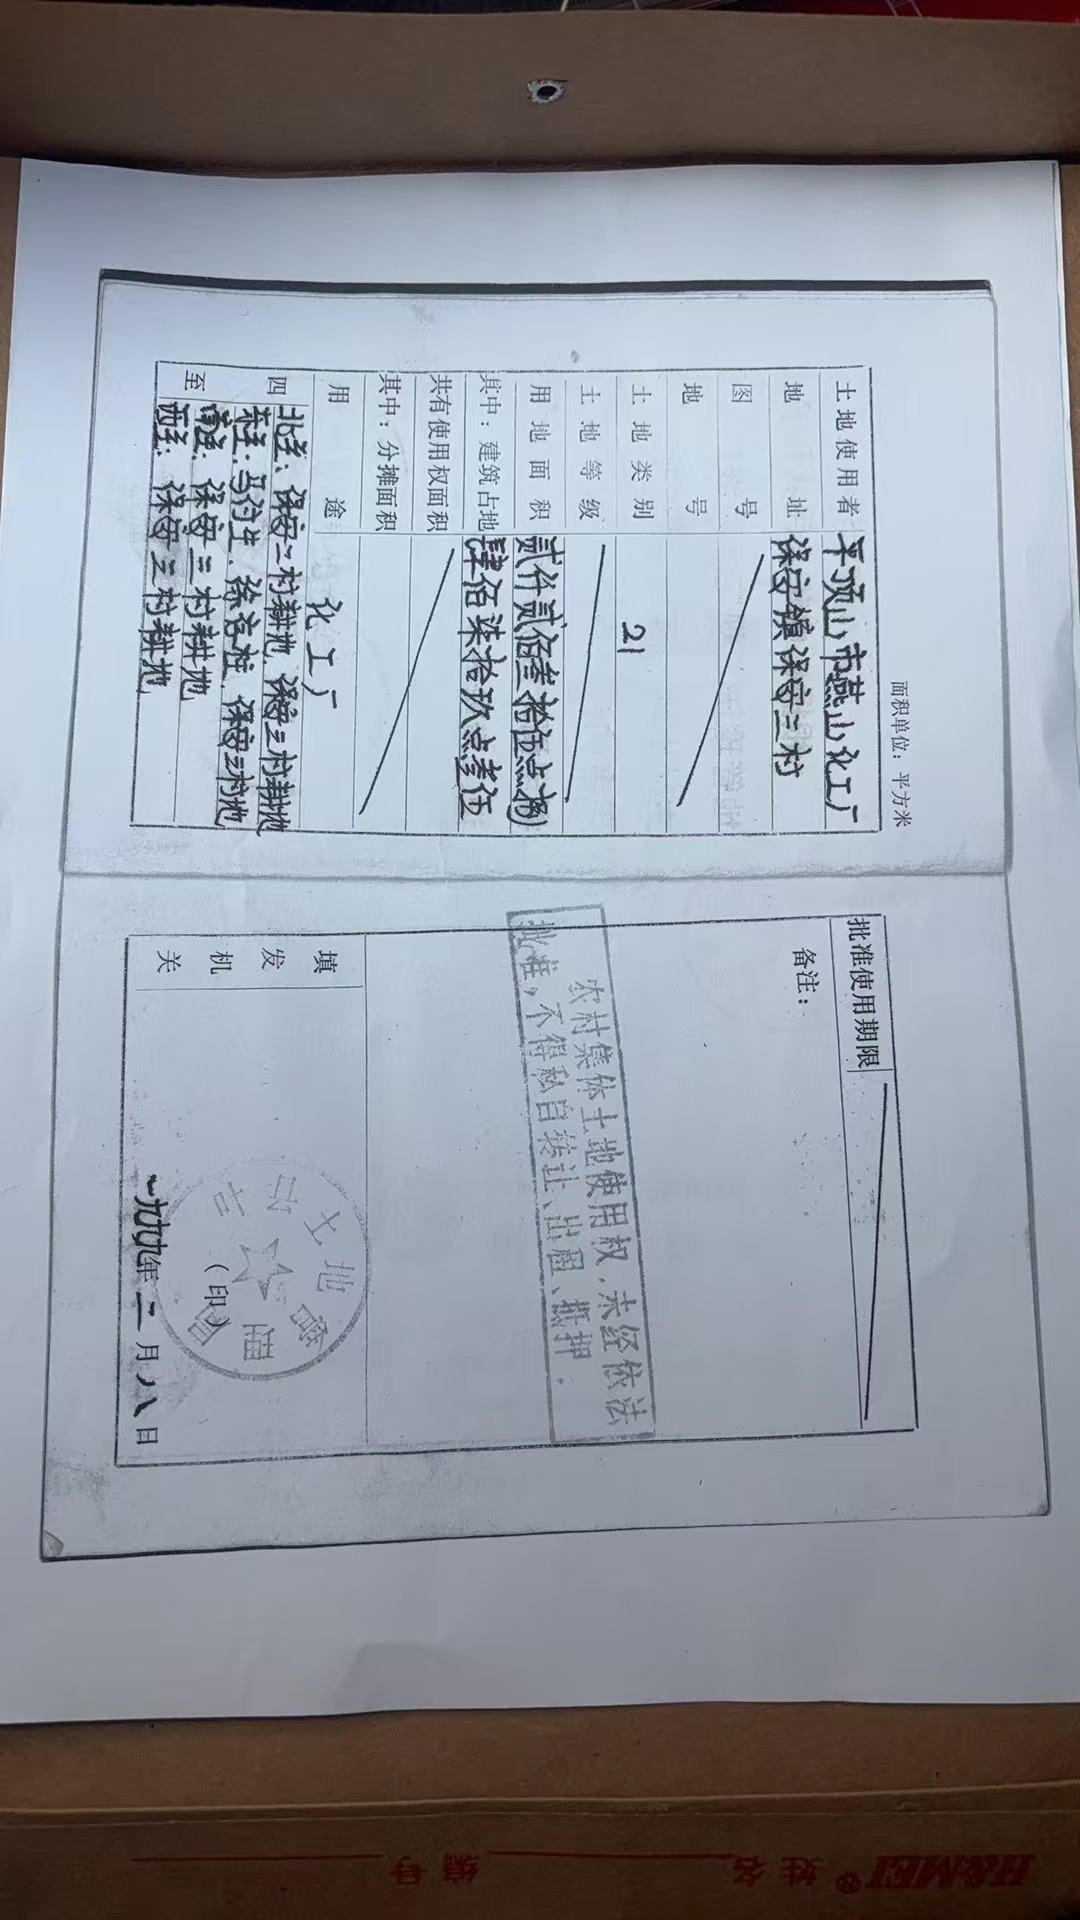 面积单位：平方米
土地使用者 平顶山市燕山化工厂
地址 保安镇保安三村
图号
地号
土地类别 21
土地等级
用地面积 贰仟贰佰叁拾伍点
其中：建筑占地 肆佰柒拾玖点叁伍
共有使用权面积
其中：分摊面积
用途 化工厂
四至
北至：保安二村耕地、保安三村耕地
东至：马付生、徐 桩、保安三村地
南至：保安三村耕地
西至：保安三村耕地
批准使用期限
备注：
农村集体土地使用权，未经依法
批准，不得私自转让、出租、抵押。
填发机关
土地管理
（印）
一九九九年二月八日
H&MEI® 姓名 编号